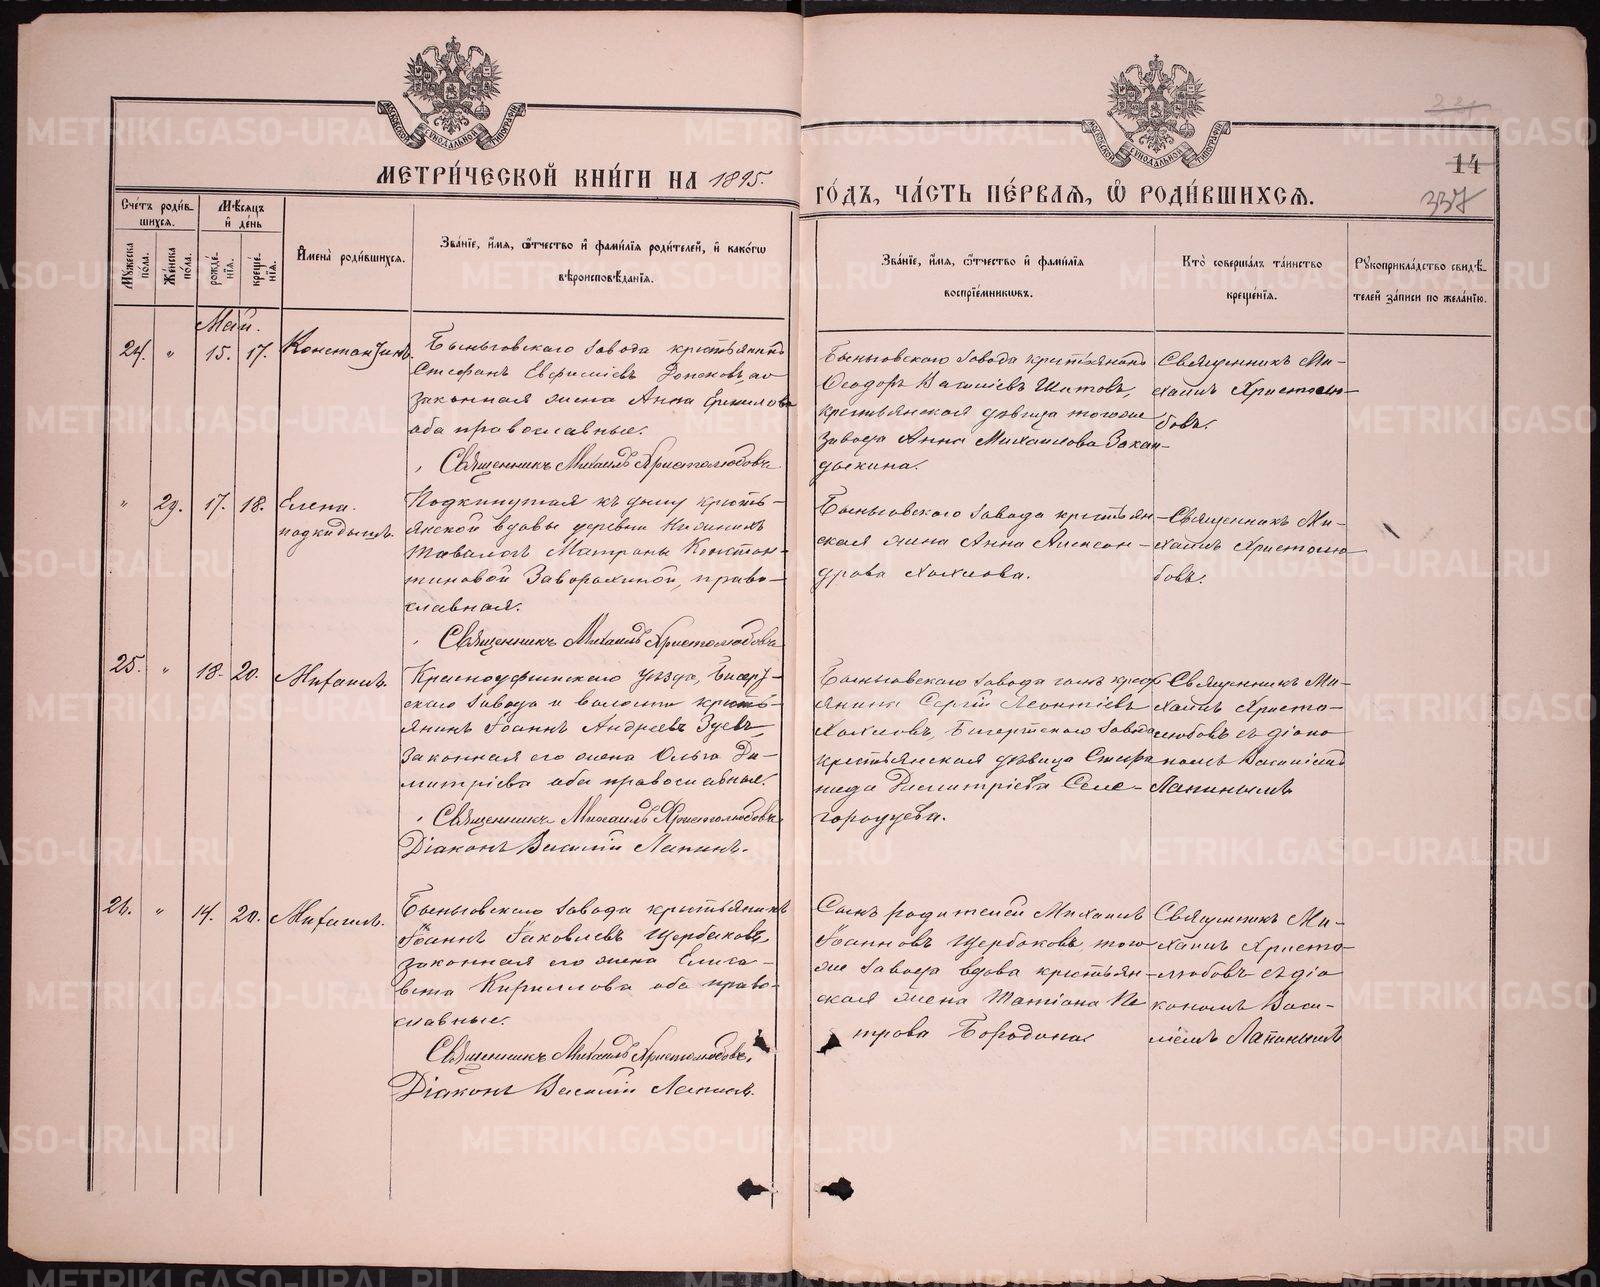 МЕТРИ́ЧЕСКОЙ КНИ́ГИ НА 1895.
ГО́ДЪ, ЧА́СТЬ ПЕ́РВАЯ, Ѽ РОДИ́ВШИХСЯ.
14
337
Сче́тъ роди́в-
шихся.
Му́жеска по́ла.
Же́нска по́ла.
Мѣ́сяцъ
и҆ де́нь
рожде́-
нїя.
креще́-
нїя.
И҆мена̀ роди́вшихся.
Зва́нїе, и҆́мя, ѻ҆́тчество и҆ фами́лїя роди́телей, и҆ како́гѡ
вѣроисповѣ́данїя.
Зва́нїе, и҆́мя, ѻ҆́тчество и҆ фами́лїя
воспрїе́мниковъ.
Кто̀ соверша́лъ та́инство
креще́нїя.
Рукоприкла́дство свидѣ́-
телей за́писи по жела́нїю.
Май.
24. " 15. 17. Константинъ.
Быньговскаго завода крестьянинъ
Стефанъ Евфиміевъ
законная жена Анна
оба православные.
Священникъ Михаилъ Христолюбовъ
Быньговскаго завода крестьянинъ
Ѳеодоръ Василіевъ Шитовъ,
крестьянская дѣвица тогоже
завода Анна Михаилова
Священникъ Ми-
хаилъ Христолю-
бовъ.
" 29. 17. 18. Елена
подкидышъ.
Подкинутая къ дому кресть-
янской вдовы деревни Нижнихъ
Тавологъ Матроны Констан-
тиновой Заворохиной, право-
славная.
Священникъ Михаилъ Христолюбовъ
Быньговскаго завода крестьян-
ская жена Анна Алексан-
дрова Хохлова.
Священникъ Ми-
хаилъ Христолю-
бовъ.
25. " 18. 20. Михаилъ.
Красноуфимскаго уѣзда, Бисерт-
скаго завода и волости кресть-
янинъ Іоаннъ Андреевъ Зуевъ,
законная его жена Ольга Ди-
митріева оба православные.
Священникъ Михаилъ Христолюбовъ
Діаконъ Василій Лапинъ.
Быньговскаго завода сынъ крест-
янина Сергій Леонтіевъ
Хохловъ, Бисертскаго завода
крестьянская дѣвица Степа
нида Димитріева Селе-
городцева.
Священникъ Ми-
хаилъ Христо-
любовъ съ діако
номъ Василіемъ
Лапинымъ
26. " 14. 20. Михаилъ.
Быньговскаго завода крестьянинъ
Іоаннъ Іаковлевъ Щербаковъ,
законная его жена Елиса-
вета Кириллова оба право-
славные.
Священникъ Михаилъ Христолюбовъ.
Діаконъ Василій Лапинъ.
Сынъ родителей Михаилъ
Іоанновъ Щербаковъ, того
же завода вдова крестьян-
ская жена Татіана Пе
трова Бородина.
Священникъ Ми-
хаилъ Христо-
любовъ съ діа
кономъ Васи-
ліемъ Лапинымъ
METRIKI.GASO-URAL.RU